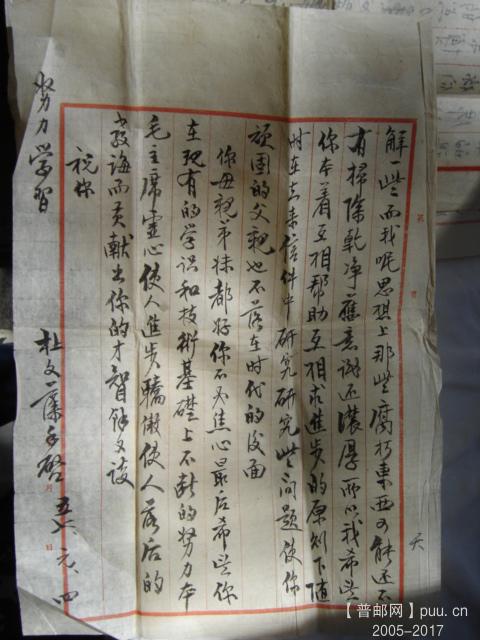 解一些而我呢思想上那些腐朽東西可能还不
有掃除乾净舊意識还濃厚所以我希望
你本着互相帮助互相求進步的原则下随
时在来信件中研究研究些问题使你
顽固的父親也不落在时代的后面
你母親弟妹都好你不必焦心最后希望你
在现有的学识和技術基礎上不断的努力本
毛主席虚心使人進步驕傲使人落后的
教诲而贡献出你的才智餘文後談
祝你
努力学習
杜文藻手啓
月
日
五六、元、四
【普邮网】puu.cn
2005-2017